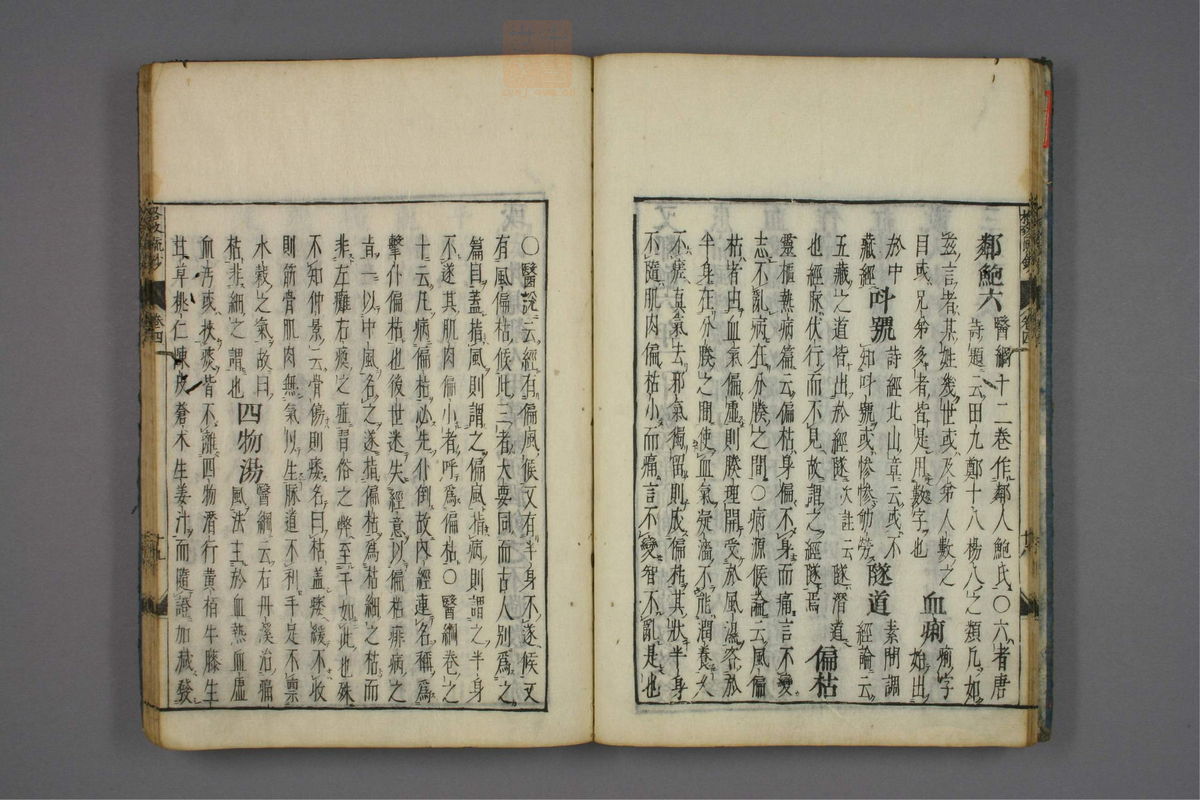 鄰鮑六 醫綱十二卷作鄰人鮑氏〇六者唐
詩題云田九鄭十八楊八之類凡如
茲言者某姓幾世或及弟人數之
目或兄弟多者皆是用數字也 血痢 痢字
於中 始出
藏經 叫號 詩經北山章云或不
知叫號或慘慘劬勞 隧道 素問調
經論云
五藏之道皆出於經隧 次註云
隧潛道
也經脉伏行而不見故謂之經隧焉 偏枯
靈樞熱病篇云偏枯身偏不身而痛言不變
志不亂病在分腠之間〇病源候論云風偏
枯者由血氣偏虛則腠理開受於風濕客於
半身在分腠之間使血氣凝濇不能潤養久
不瘥真氣去邪氣獨留則成偏枯其狀半身
不隨肌肉偏枯小而痛言不變智不亂是也
〇醫說云經有偏風候又有半身不遂候又
有風偏枯候此三者大要同而古人別爲之
篇目蓋指風則謂之偏風指病則謂之半身
不遂其肌肉偏小者呼爲偏枯〇醫綱卷之
十云凡病偏枯必先仆倒故內經連名稱爲
擊仆偏枯也後世迷失經意以偏枯痱病之
旨一以中風名之遂指偏枯爲枯細之枯而
非左癱右瘓之症習俗之弊至于如此也殊
不知仲景云骨傷則痿名曰枯蓋痿緩不收
則筋骨肌肉無氣以生脉道不利手足不禀
水穀之氣故曰
枯非細之謂也 四物湯 醫綱云右丹溪治痛
風法主於血熱血虛
血汚或挾痰皆不離四物潛行黃栢牛膝生
甘草桃仁陳皮蒼朮生姜汁而隨證加減發
卷四
十八
卷四
十九